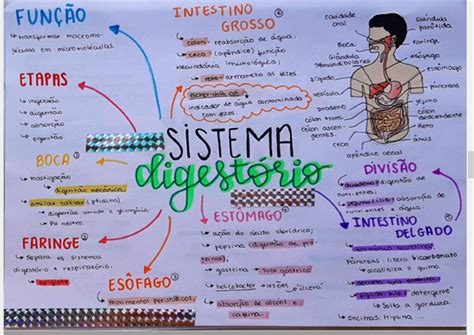 FUNÇÃO
↳ transformar macromo-
léculas em micromoléculas
ETAPAS
↳ ingestão
↳ digestão
↳ absorção
↳ egestão
BOCA ①
↳ mastigação
↳ digestão mecânica
↳ amilase salivar (ptialina)
↳ digestão amido e glicogênio
↳ PH neutro
FARINGE ②
↳ separa os sistemas
digestório e respiratório.
↳ epiglote
ESÔFAGO ③
↳ movimentos peristálticos
SISTEMA
digestório
INTESTINO
GROSSO ⑥
↳ cólon - reabsorção de água
↳ ceco (apêndice) função
secundária imunológica;
↳ reto - armazena as fezes
escherichia coli
indicador de água contaminada
com fezes
ESTÔMAGO ④
↳ ação do ácido clorídrico;
↳ pepsina (digestão de pro
teínas);
↳ gastrina → suco gástrico
↳ helicobacter →
↳ absorção de álcool e
cafeína.
cavidade
oral
Glândula
parótida
Boca
faringe
Glândulas
Submandibulares
esôfago
fígado
estômago
vesícula
pâncreas
duodeno
jejuno
cólon
ascen-
dente
cólon
descendente
ceco
íleo
reto
ânus
apêndice cecal
DIVISÃO
↳ duodeno: digestão de
nutrientes;
↳ absorção de
nutrientes e água.
INTESTINO
DELGADO ⑤
Pâncreas: libera bicarbonato
↳ alcaliniza o quimo
↳ secreção de
bile "detergente"
↳ solta a gordura
↳ enzimas: tripsina...